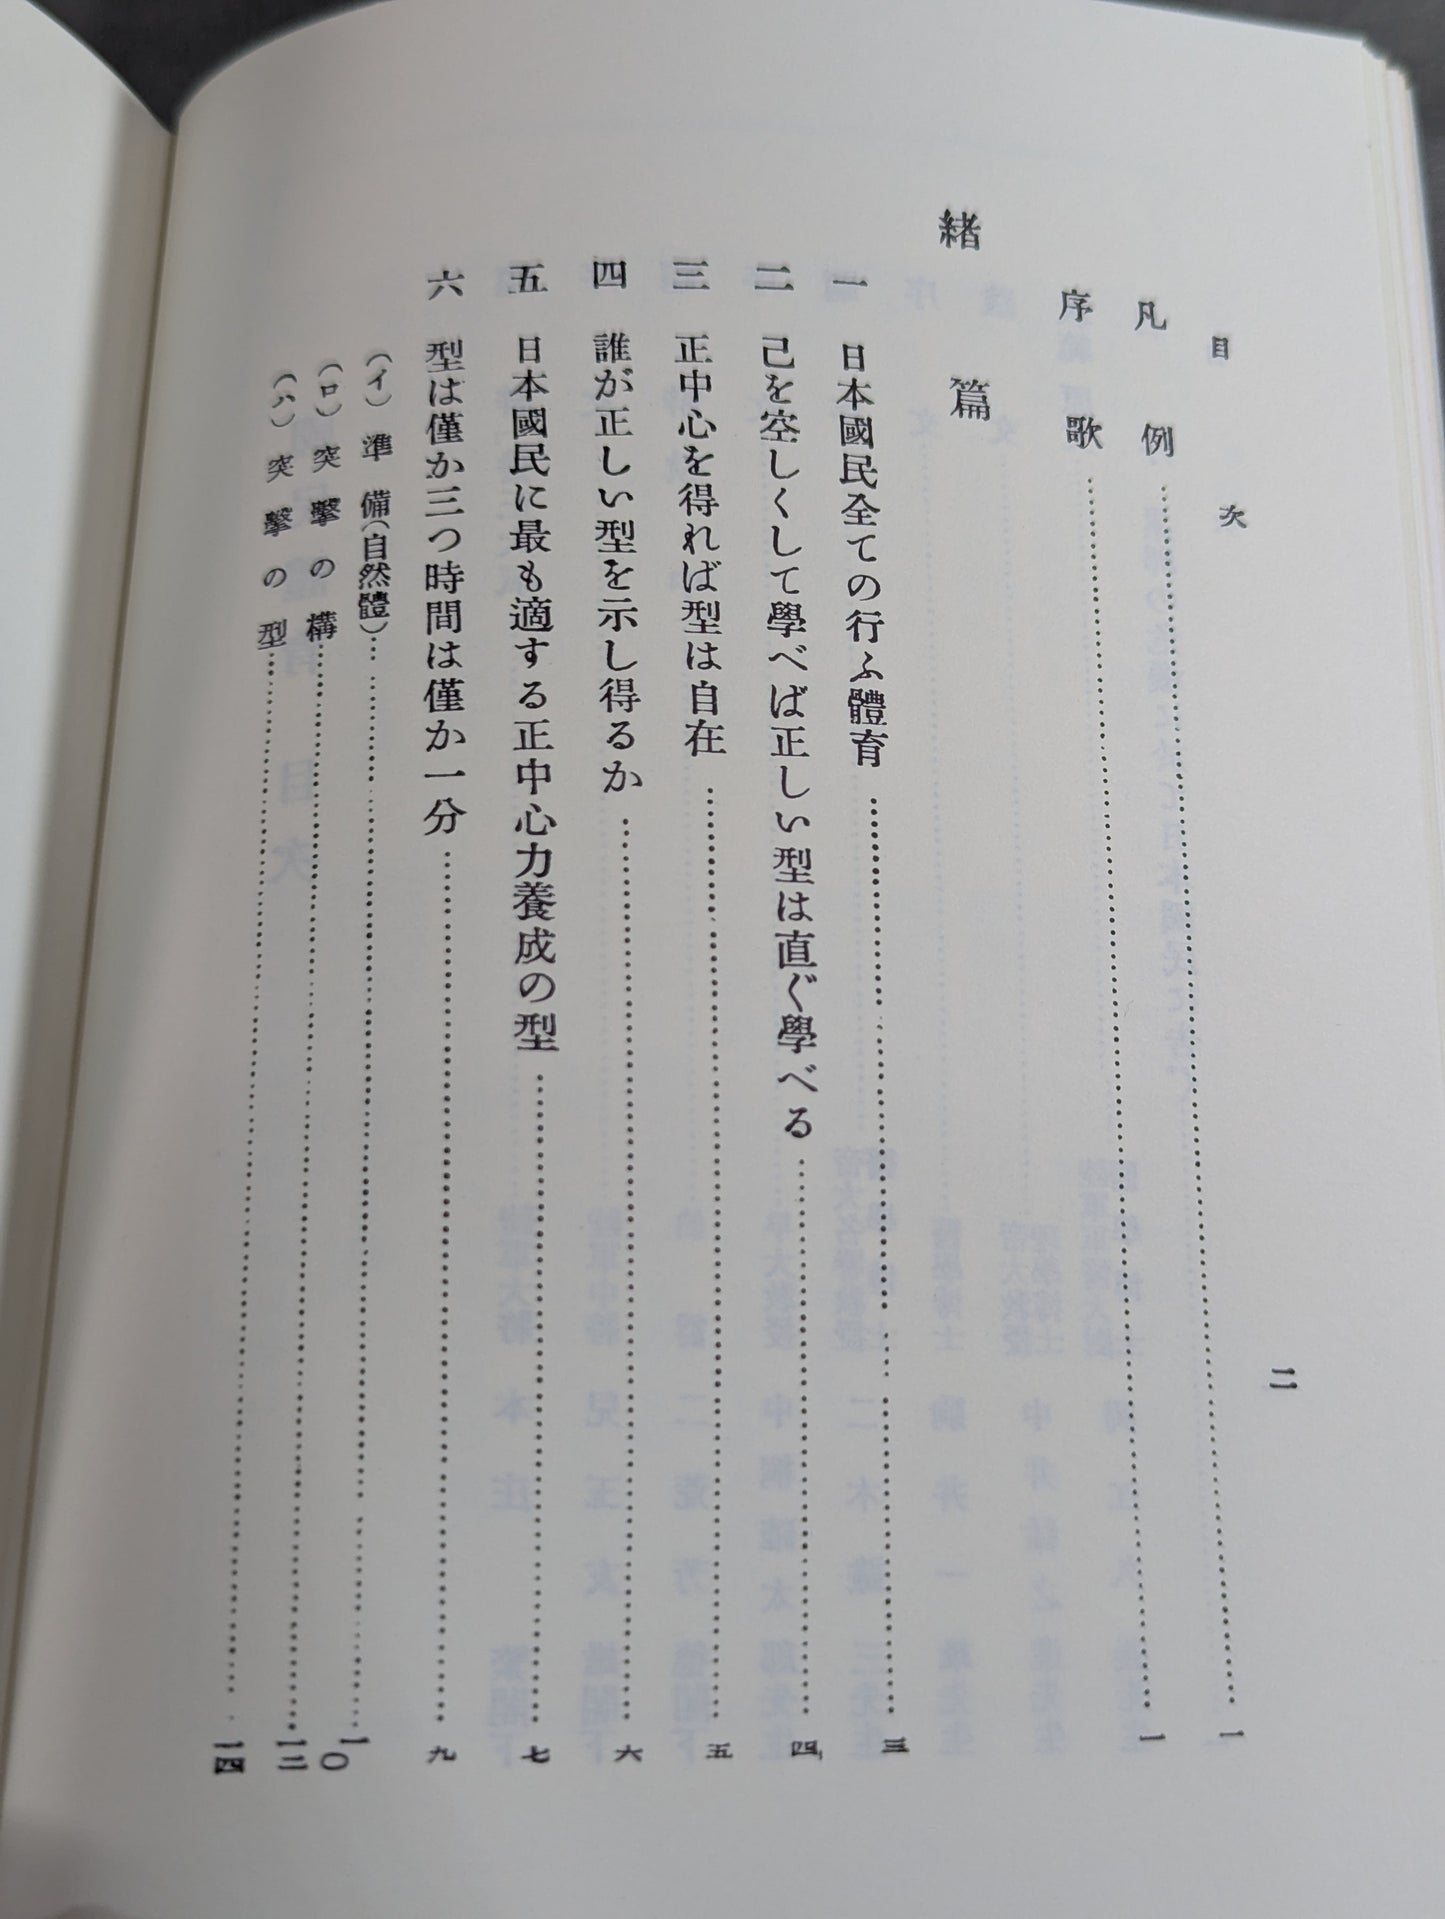 目次
二
凡例……一
序歌……一
緖篇
一 日本國民全ての行ふ體育……三
二 己を空しくして學べば正しい型は直ぐ學べる……四
三 正中心を得れば型は自在……五
四 誰が正しい型を示し得るか……六
五 日本國民に最も適する正中心力養成の型……七
六 型は僅か三つ時間は僅か一分……九
（イ）準備（自然體）……一〇
（ロ）突擊の構……一二
（ハ）突擊の型……一四